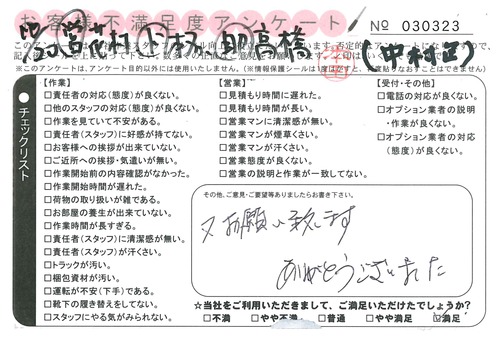 お客様不満足度アンケート
No 030323
高橋
(中村区)
※このアンケートは、アンケート目的以外には使用いたしません。
チェックリスト
【作業】
□責任者の対応(態度)が良くない。
□他のスタッフの対応(態度)が良くない。
□作業を見ていて不安がある。
□責任者(スタッフ)に好感が持てない。
□お客様への挨拶が出来ていない。
□ご近所への挨拶・気遣いが無い。
□作業開始前の内容確認がなかった。
□作業開始時間が遅れた。
□荷物の取り扱いが雑である。
□お部屋の養生が出来ていない。
□作業時間が長すぎる。
□責任者(スタッフ)に清潔感が無い。
□責任者(スタッフ)が汗くさい。
□トラックが汚い。
□梱包資材が汚い。
□運転が不安(下手)である。
□靴下の履き替えをしてない。
□スタッフにやる気がみられない。
【営業】
□見積もり時間に遅れた。
□見積もり時間が長い。
□営業マンに清潔感が無い。
□営業マンが煙草くさい。
□営業マンが汗くさい。
□営業態度が良くない。
□営業の説明と作業が一致してない。
【受付・その他】
□電話の対応が良くない。
□オプション業者の説明
・作業が良くない。
□オプション業者の対応
(態度)が良くない。
その他、ご意見・ご要望等ありましたらお書き下さい。
又お願い致します
ありがとうございました
☆当社をご利用いただきまして、ご満足いただけたでしょうか?
□不満 □やや不満 □普通 □やや満足 ☑満足